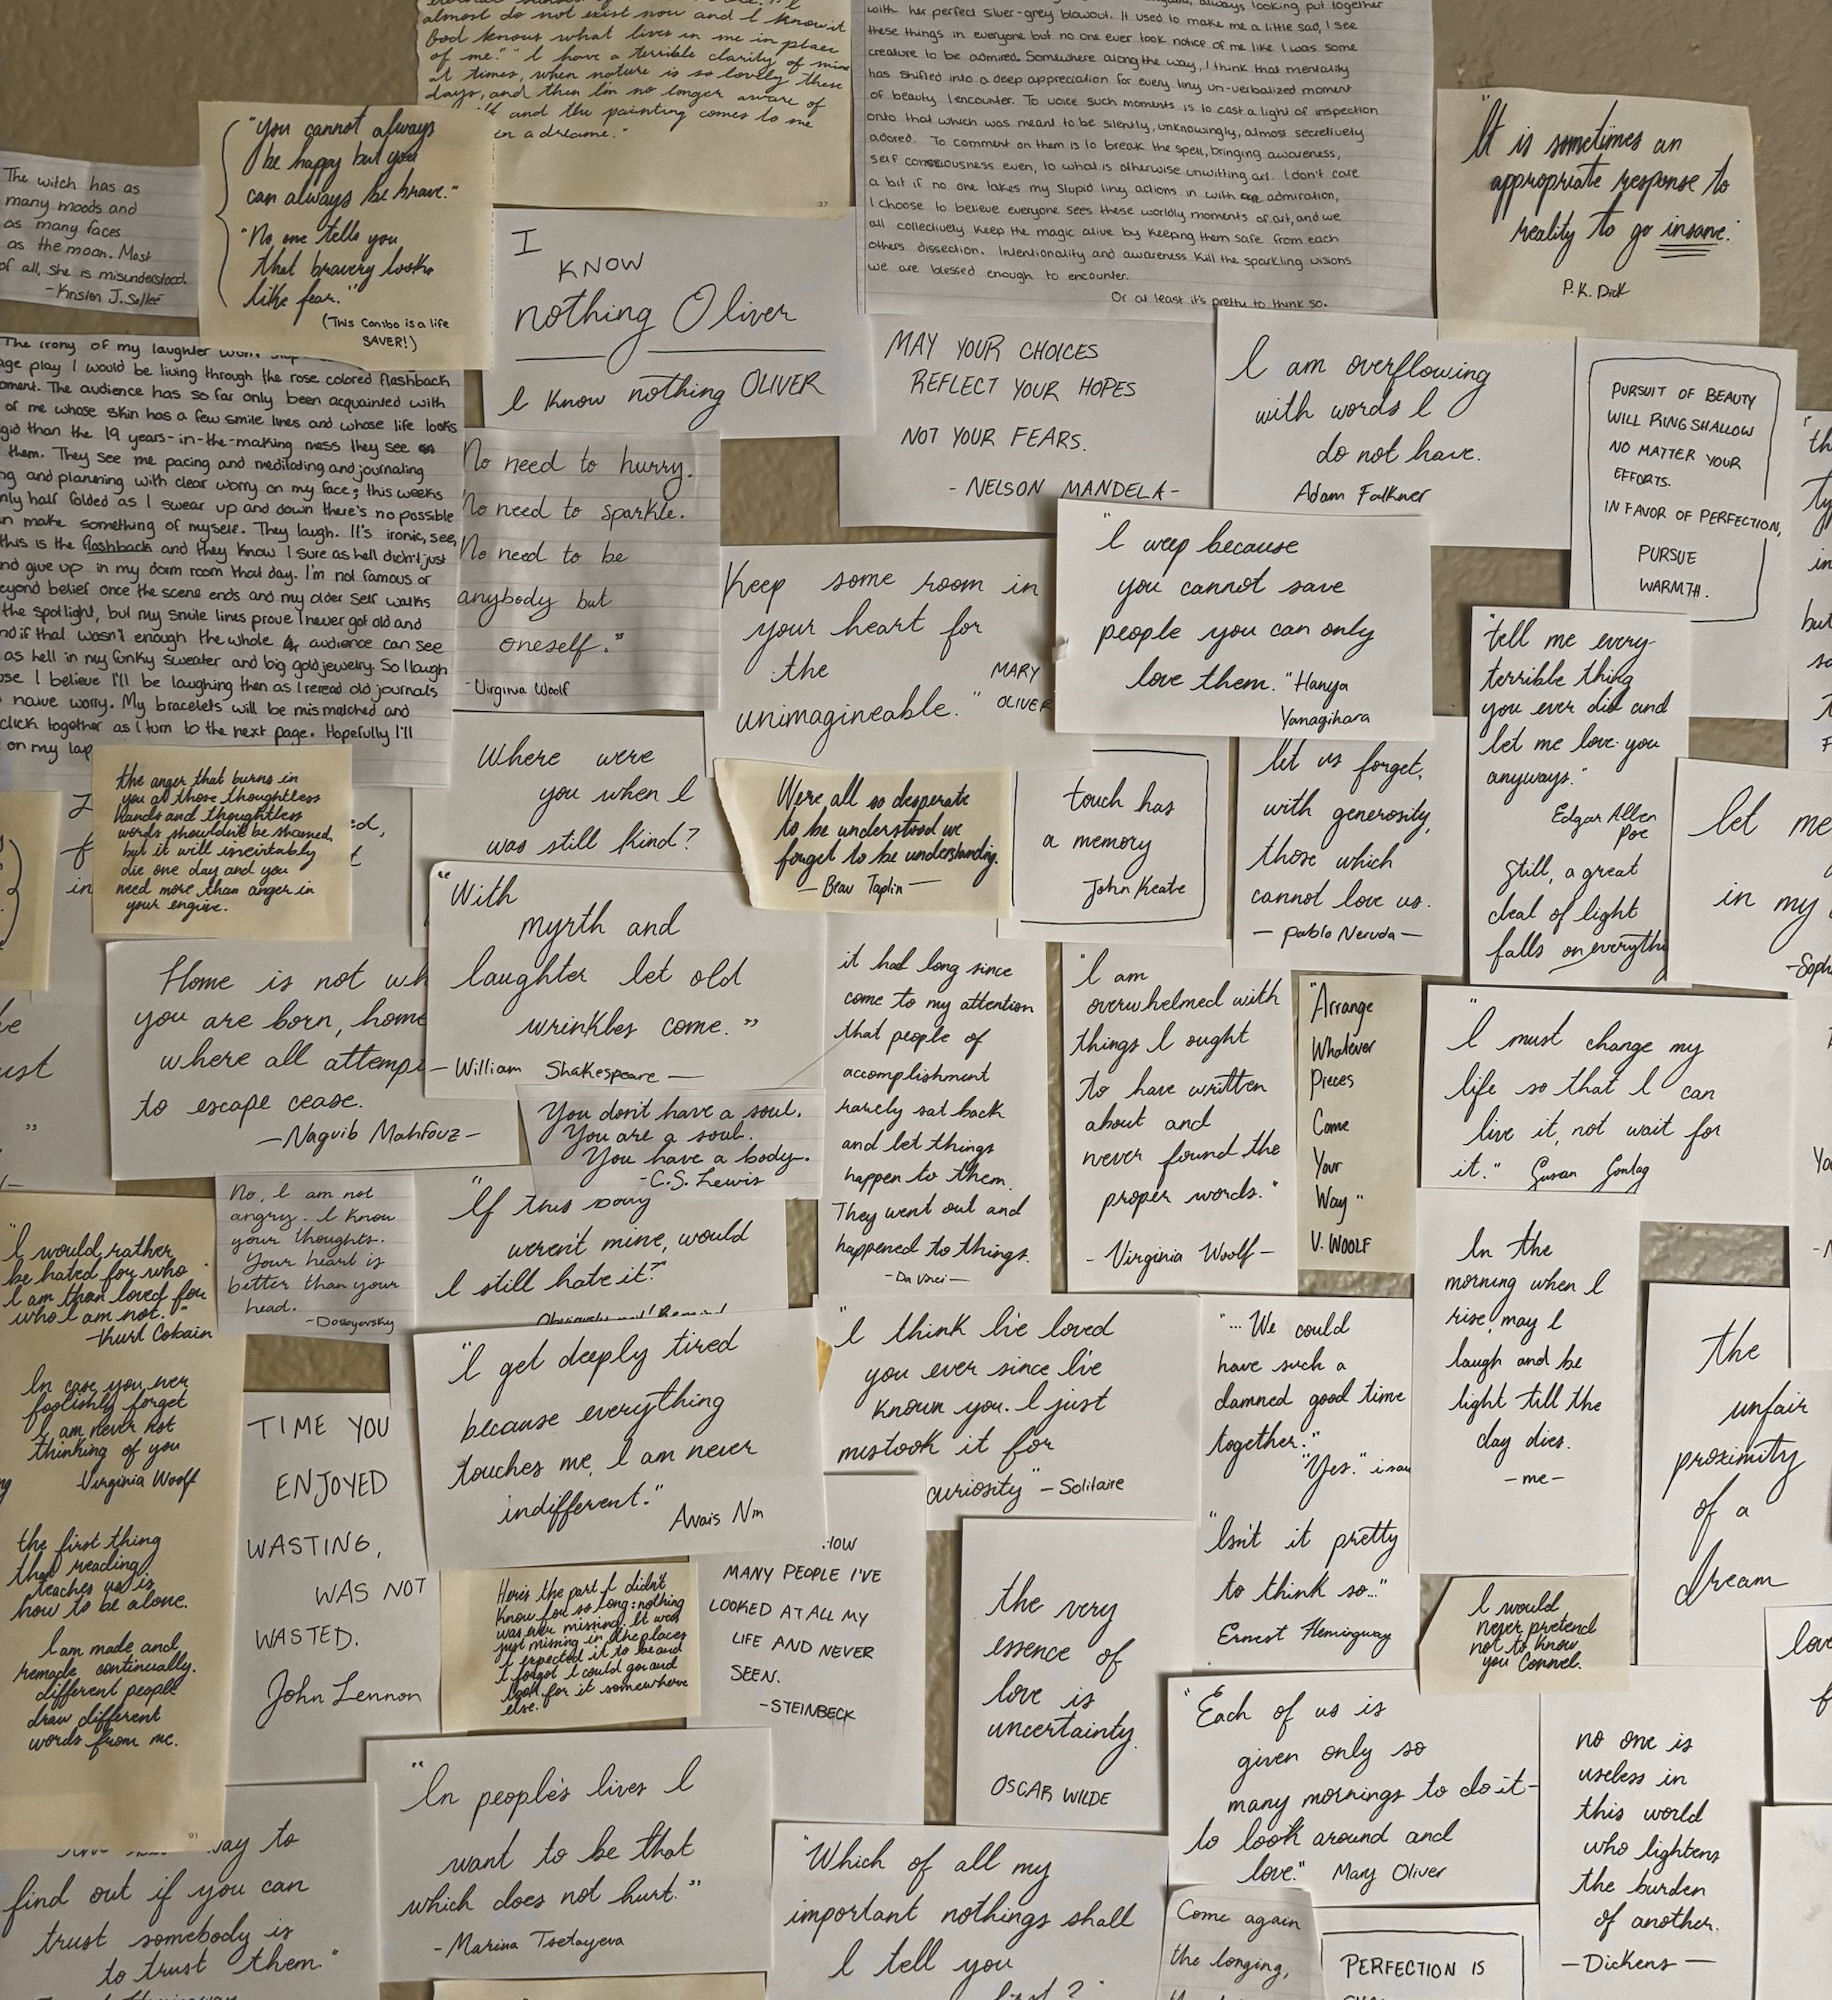 almost do not exist now and I know it
God knows what lives in me in place
of me." "I have a terrible clarity of mind
at times, when nature is so lovely these
days, and then I'm no longer aware of
and the painting comes to me
in a dreame."
37
always looking put together
with her perfect silver-grey blowout. It used to make me a little sad, I see
these things in everyone but no one ever took notice of me like I was some
creature to be admired. Somewhere along the way, I think that mentality
has shifted into a deep appreciation for every tiny un-verbalized moment
of beauty I encounter. To voice such moments is to cast a light of inspection
onto that which was meant to be silently, unknowingly, almost secretively
adored. To comment on them is to break the spell, bringing awareness,
self consciousness even, to what is otherwise unwitting art. I don't care
a bit if no one takes my stupid tiny actions in with admiration,
I choose to believe everyone sees these worldly moments of art, and we
all collectively keep the magic alive by keeping them safe from each
others dissection. Intentionality and awareness kill the sparkling visions
we are blessed enough to encounter.
Or at least it's pretty to think so.
"It is sometimes an
appropriate response to
reality to go insane."
P.K. Dick
"You cannot always
be happy but you
can always be brave."
"No one tells you
that bravery looks
like fear."
(This Combo is a life
SAVER!)
The witch has as
many moods and
as many faces
as the moon. Most
of all, she is misunderstood.
-Kristen J. Sollee
I
KNOW
nothing Oliver
I know nothing OLIVER
MAY YOUR CHOICES
REFLECT YOUR HOPES
NOT YOUR FEARS.
- NELSON MANDELA -
I am overflowing
with words I
do not have.
Adam Falkner
PURSUIT OF BEAUTY
WILL RING SHALLOW
NO MATTER YOUR
EFFORTS.
IN FAVOR OF PERFECTION,
PURSUE
WARMTH.
The irony of my laughter won't stop
age play I would be living through the rose colored flashback
oment. The audience has so far only been acquainted with
of me whose skin has a few smile lines and whose life looks
gid than the 19 years-in-the-making mess they see
them. They see me pacing and meditating and journaling
ng and planning with clear worry on my face; this weeks
nly half folded as I swear up and down there's no possible
n make something of myself. They laugh. It's ironic, see,
this is the flashback and they know I sure as hell didn't just
nd give up in my dorm room that day. I'm not famous or
eyond belief once the scene ends and my older self walks
the spotlight, but my smile lines prove I never got old and
nd if that wasn't enough the whole audience can see
as hell in my funky sweater and big gold jewelry. So I laugh
use I believe I'll be laughing then as I reread old journals
naive worry. My bracelets will be mismatched and
click together as I turn to the next page. Hopefully I'll
on my lap
No need to hurry.
No need to sparkle.
No need to be
anybody but
oneself."
-Virginia Woolf
Keep some room in
your heart for
the
unimagineable."
MARY
OLIVER
"I weep because
you cannot save
people you can only
love them." Hanya
Yanagihara
"tell me every
terrible thing
you ever did and
let me love you
anyways."
Edgar Allen
Poe
Still, a great
deal of light
falls on everythi
let me
in my
-Soph
Where were
you when I
was still kind?
the anger that burns in
you at those thoughtless
hands and thoughtless
words shouldn't be shamed,
but it will inevitably
die one day and you
need more than anger in
your engine.
We're all so desperate
to be understood we
forget to be understanding.
- Beau Taplin -
touch has
a memory
John Keats
let us forget,
with generosity,
those which
cannot love us.
- Pablo Neruda -
Home is not wh
you are born, home
where all attemp
to escape cease.
-Naguib Mahfouz-
"With
myrth and
laughter let old
wrinkles come."
- William Shakespeare -
You don't have a soul.
You are a soul.
You have a body.
-C.S. Lewis
it had long since
come to my attention
that people of
accomplishment
rarely sat back
and let things
happen to them.
They went out and
happened to things.
-Da Vinci-
"I am
overwhelmed with
things I ought
to have written
about and
never found the
proper words."
- Virginia Woolf -
"Arrange
Whatever
Pieces
Come
Your
Way"
V. WOOLF
"I must change my
life so that I can
live it, not wait for
it." Susan Sontag
No, I am not
angry. I know
your thoughts.
Your heart is
better than your
head.
-Dostoyevsky
"If this song
weren't mine, would
I still hate it?"
"I would rather
be hated for who
I am than loved for
who I am not."
-Kurt Cobain
In case you ever
foolishly forget
I am never not
thinking of you
Virginia Woolf
the first thing
that reading
teaches us is
how to be alone.
I am made and
remade continually.
different people
draw different
words from me.
91
TIME YOU
ENJOYED
WASTING,
WAS NOT
WASTED.
John Lennon
"I get deeply tired
because everything
touches me, I am never
indifferent."
Anais Nin
"I think I've loved
you ever since I've
known you. I just
mistook it for
curiosity" - Solitaire
"... We could
have such a
damned good time
together."
"Yes." i saw
"Isn't it pretty
to think so..."
Ernest Hemingway
In the
morning when I
rise, may I
laugh and be
light till the
day dies.
-me-
the
unfair
proximity
of a
dream
Here's the part I didn't
know for so long: nothing
was ever missing. It was
just missing in the places
I expected it to be and
I forgot I could go and
look for it somewhere
else.
HOW
MANY PEOPLE I'VE
LOOKED AT ALL MY
LIFE AND NEVER
SEEN.
-STEINBECK
the very
essence of
love is
uncertainty.
OSCAR WILDE
I would
never pretend
not to know
you Connel.
"Each of us is
given only so
many mornings to do it-
to look around and
love." Mary Oliver
no one is
useless in
this world
who lightens
the burden
of another.
- Dickens -
"In people's lives I
want to be that
which does not hurt."
- Marina Tsetayeva
way to
find out if you can
trust somebody is
to trust them."
"Which of all my
important nothings shall
I tell you
first?"
Come again
the longing,
PERFECTION IS